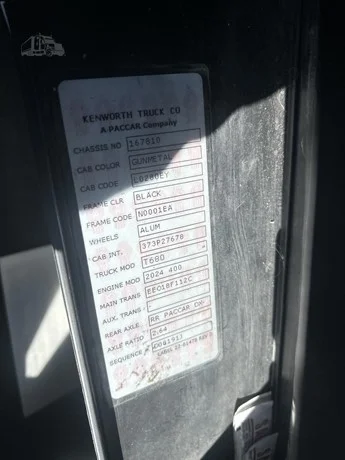 KENWORTH TRUCK CO
A PACCAR Company
CHASSIS NO 167810
CAB COLOR GUNMETAL
CAB CODE L0280EY
FRAME CLR BLACK
FRAME CODE N0001EA
WHEELS ALUM
CAB INT. 373P27678
TRUCK MOD T680
ENGINE MOD 2024 400
MAIN TRANS EEO18F112C
AUX. TRANS
REAR AXLE RR PACCAR
AXLE RATIO 2.64
SEQUENCE #
LABEL